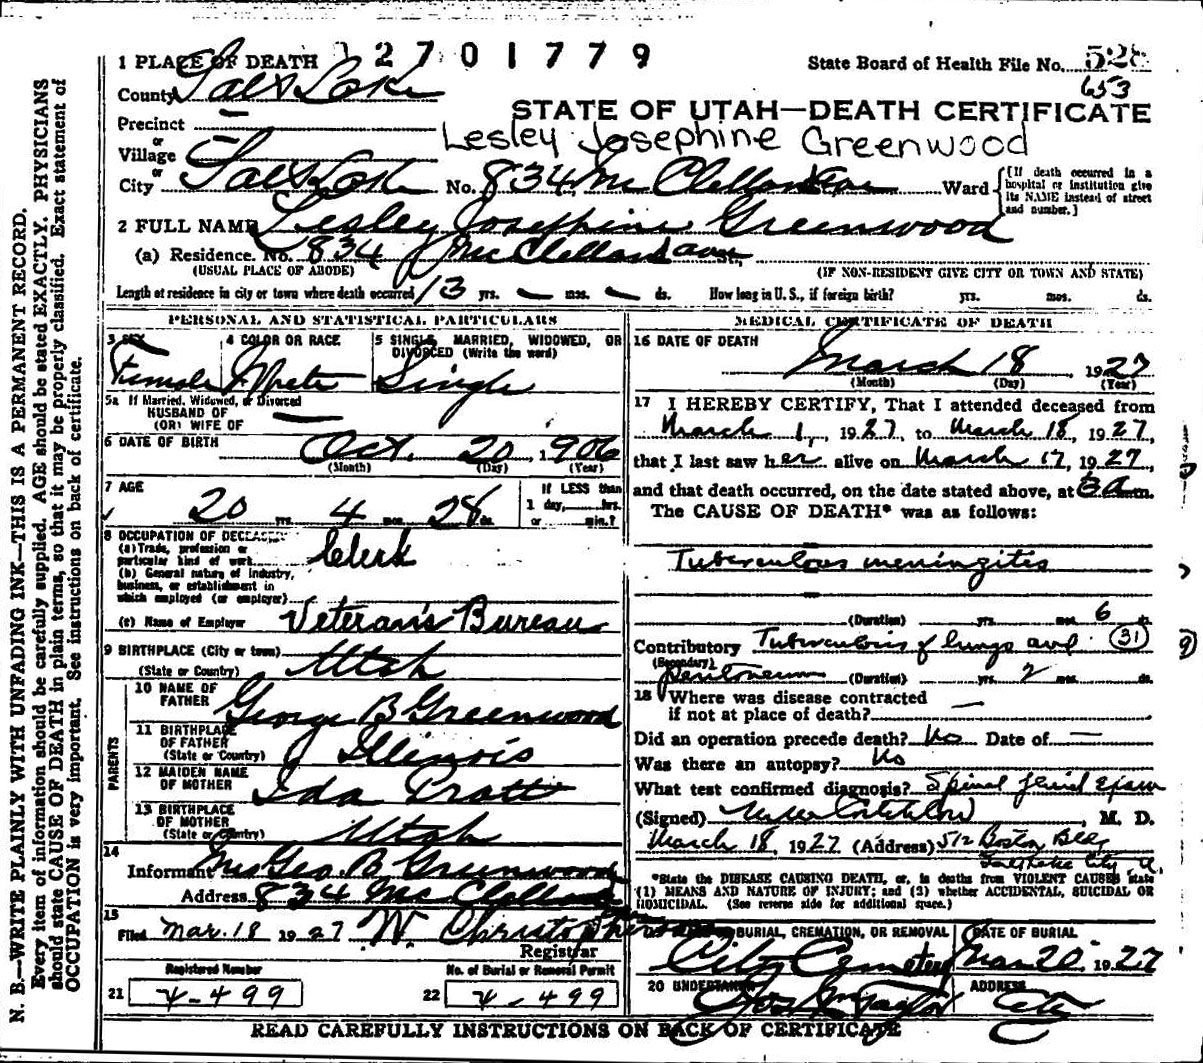 N. B.—WRITE PLAINLY WITH UNFADING INK—THIS IS A PERMANENT RECORD.
Every item of information should be carefully supplied. AGE should be stated EXACTLY. PHYSICIANS
should state CAUSE OF DEATH in plain terms, so that it may be properly classified. Exact statement of
OCCUPATION is very important. See instructions on back of certificate.
1 PLACE OF DEATH 2701779 State Board of Health File No. 528
County Salt Lake 653
STATE OF UTAH—DEATH CERTIFICATE
Precinct —
Lesley Josephine Greenwood
or
Village —
or
City Salt Lake No. 834 McClelland Ward
{If death occurred in a
hospital or institution give
its NAME instead of street
and number.}
2 FULL NAME Lesley Josephine Greenwood
(a) Residence. No. 834 McClelland ave
(USUAL PLACE OF ABODE) (IF NON-RESIDENT GIVE CITY OR TOWN AND STATE)
Length of residence in city or town where death occurred 13 yrs. — mos. — ds. How long in U. S., if foreign birth? yrs. mos. ds.
PERSONAL AND STATISTICAL PARTICULARS
3 SEX 4 COLOR OR RACE 5 SINGLE, MARRIED, WIDOWED, OR
DIVORCED (Write the word)
Female White Single
5a If Married, Widowed, or Divorced
HUSBAND OF
(OR) WIFE OF —
6 DATE OF BIRTH Oct. 20, 1906
(Month) (Day) (Year)
7 AGE If LESS than
20 yrs. 4 mos. 28 ds. 1 day, hrs.
or min.?
8 OCCUPATION OF DECEASED
(a) Trade, profession or
particular kind of work Clerk
(b) General nature of industry,
business, or establishment in
which employed (or employer)
(c) Name of Employer Veteran's Bureau
9 BIRTHPLACE (City or town)
(State or Country) Utah
PARENTS
10 NAME OF
FATHER George B Greenwood
11 BIRTHPLACE
OF FATHER
(State or Country) Illinois
12 MAIDEN NAME
OF MOTHER Ida Pratt
13 BIRTHPLACE
OF MOTHER
(State or Country) Utah
14
Informant Mrs Geo. B Greenwood
Address 834 McClelland
15
Filed Mar. 18 1927 W. Christopherson
Registrar
Registered Number No. of Burial or Removal Permit
21 X-499 22 X-499
MEDICAL CERTIFICATE OF DEATH
16 DATE OF DEATH
March 18 1927
(Month) (Day) (Year)
17 I HEREBY CERTIFY, That I attended deceased from
March 1, 1927, to March 18, 1927,
that I last saw her alive on March 17, 1927,
and that death occurred, on the date stated above, at 3 a m.
The CAUSE OF DEATH* was as follows:
Tuberculous meningites
(Duration) yrs. mos. 6
Contributory Tuberculosis of lungs and 31
(Secondary)
Peritoneum (Duration) yrs. 2 mos. ds.
18 Where was disease contracted
if not at place of death? —
Did an operation precede death? No Date of —
Was there an autopsy? No
What test confirmed diagnosis? Spinal fluid exam
(Signed) M. D.
March 18, 1927 (Address) 512 Boston Bldg
Salt Lake City U.
*State the DISEASE CAUSING DEATH, or, in deaths from VIOLENT CAUSES state
(1) MEANS AND NATURE OF INJURY; and (2) whether ACCIDENTAL, SUICIDAL OR
HOMICIDAL. (See reverse side for additional space.)
BURIAL, CREMATION, OR REMOVAL DATE OF BURIAL
City Cemetery Mar 20 1927
20 UNDERTAKER ADDRESS
Jos Wm Taylor City
READ CAREFULLY INSTRUCTIONS ON BACK OF CERTIFICATE